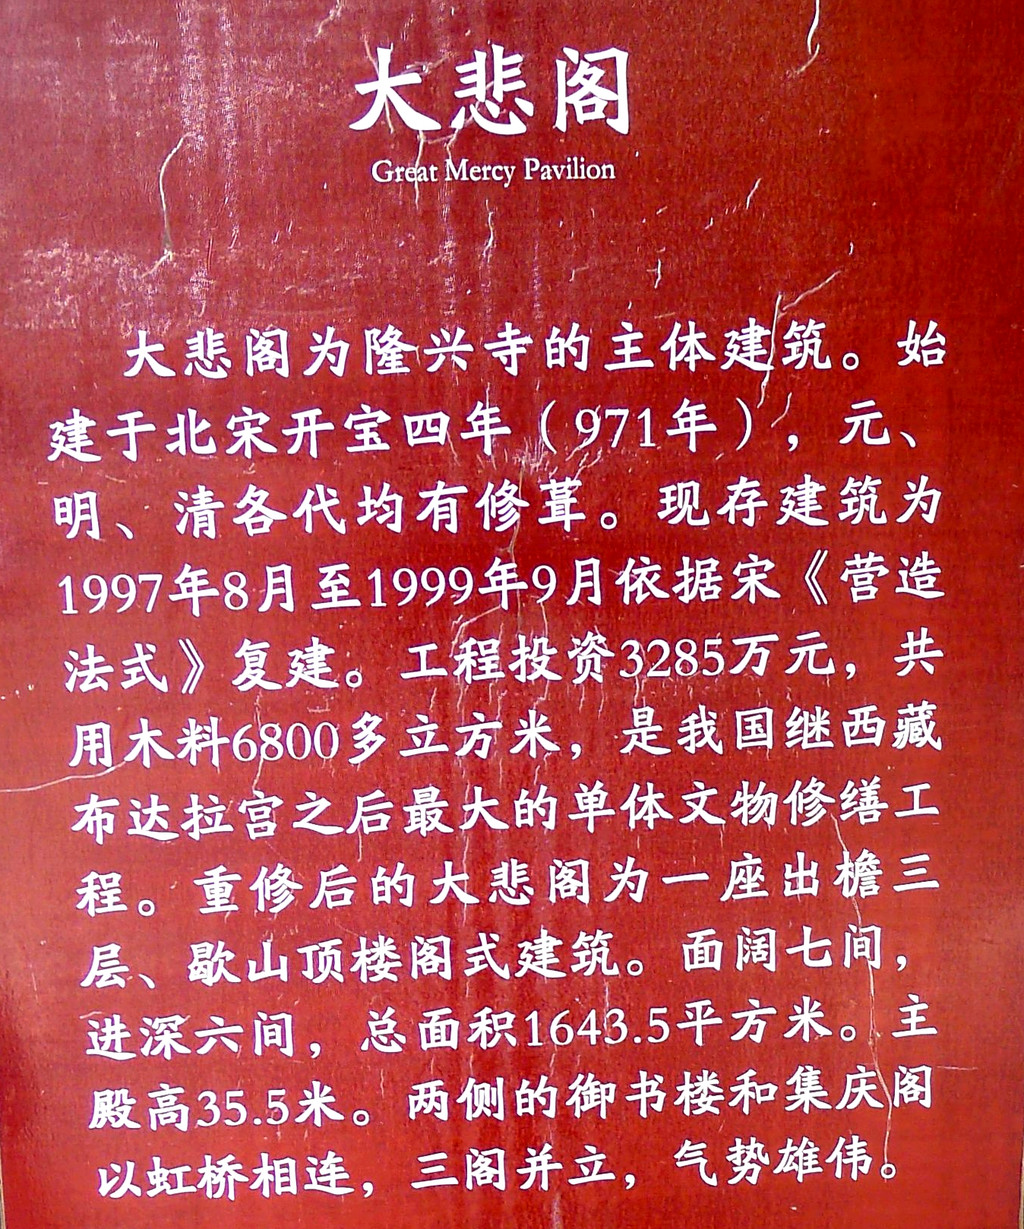 大悲阁
Great Mercy Pavilion
大悲阁为隆兴寺的主体建筑。始
建于北宋开宝四年（971年），元、
明、清各代均有修葺。现存建筑为
1997年8月至1999年9月依据宋《营造
法式》复建。工程投资3285万元，共
用木料6800多立方米，是我国继西藏
布达拉宫之后最大的单体文物修缮工
程。重修后的大悲阁为一座出檐三
层、歇山顶楼阁式建筑。面阔七间，
进深六间，总面积1643.5平方米。主
殿高35.5米。两侧的御书楼和集庆阁
以虹桥相连，三阁并立，气势雄伟。